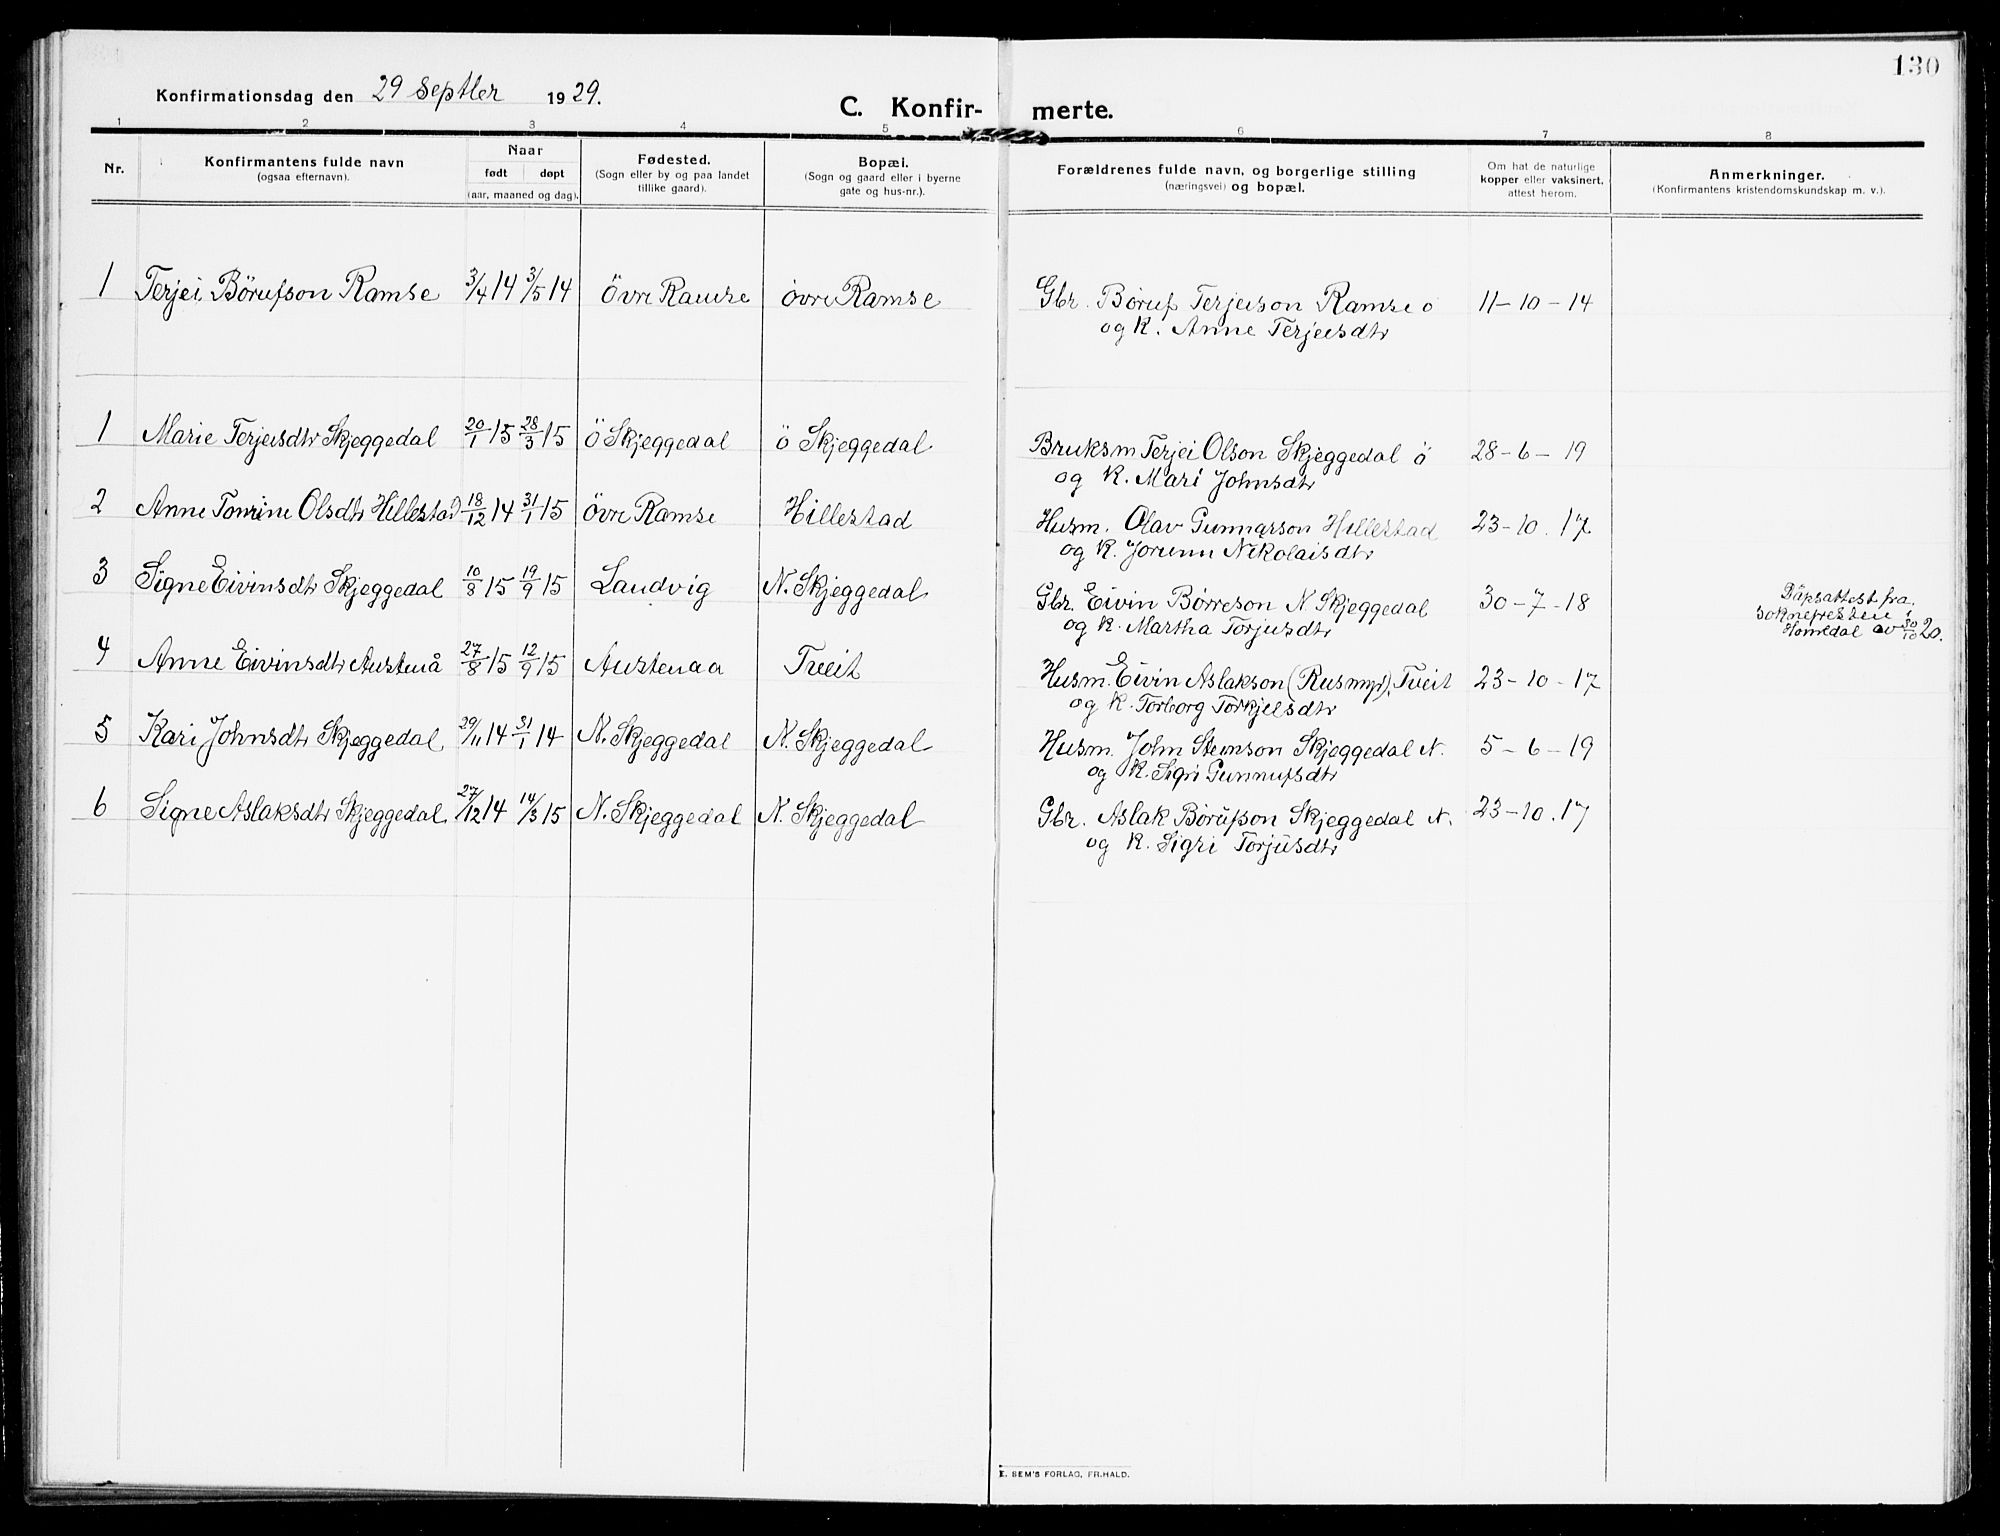 130
Konfirmationsdag den 29 Septbr 1929.
C. Konfir- merte.
1 2 3 4 5 6 7 8
Nr.
Konfirmantens fulde navn
(ogsaa efternavn).
Naar
født døpt
(aar, maaned og dag).
Fødested.
(Sogn eller by og paa landet
tillike gaard).
Bopæl.
(Sogn og gaard eller i byerne
gate og hus-nr.).
Forældrenes fulde navn, og borgerlige stilling
(næringsvei) og bopæl.
Om hat de naturlige
kopper eller vaksinert,
attest herom.
Anmerkninger.
(Konfirmantens kristendomskundskap m. v.).
1 Terjei Börufson Ramse 3/4 14 3/5 14 Övre Ramse övre Ramse Gbr. Böruf Terjeison Ramse ö 11-10-14
og K. Anne Terjeisdtr
1 Marie Terjeisdtr Skjeggedal 20/1 15 28/3 15 Ö Skjeggedal ö Skjeggedal Bruksm Terjei Olson Skjeggedal ö 28-6-19
og K. Mari Johnsdtr
2 Anne Tomine Olsdtr Hillestad 18/12 14 31/1 15 övre Ramse Hillestad Husm. Olav Gunnarson Hillestad 23-10.17
og K. Jorunn Nikolaisdtr
3 Signe Eivinsdtr Skjeggedal 10/8 15 19/9 15 Landvig N. Skjeggedal Gbr. Eivin Börreson N Skjeggedal 30-7-18 Dåpsattest fra
og K. Martha Torjusdtr
soknepresten i
Homedal av 30/10 20.
4 Anne Eivinsdtr Austenå 27/8 15 12/9 15 Austenaa Tveit Husm. Eivin Aslakson (Rusmyr), Tveit 23-10-17
og K. Torborg Torkjelsdtr
5 Kari Johnsdtr Skjeggedal 29/11 14 31/1 14 N. Skjeggedal N. Skjeggedal Husm. John Steinson Skjeggedal N. 5-6-19
og K. Sigri Gunnufsdtr
6 Signe Aslaksdtr Skjeggedal 27/12 14 14/3 15 N. Skjeggedal N. Skjeggedal Gbr. Aslak Börufson Skjeggedal N. 23-10.17
og K. Sigri Torjusdtr
E. SEM'S FORLAG, FR.HALD.